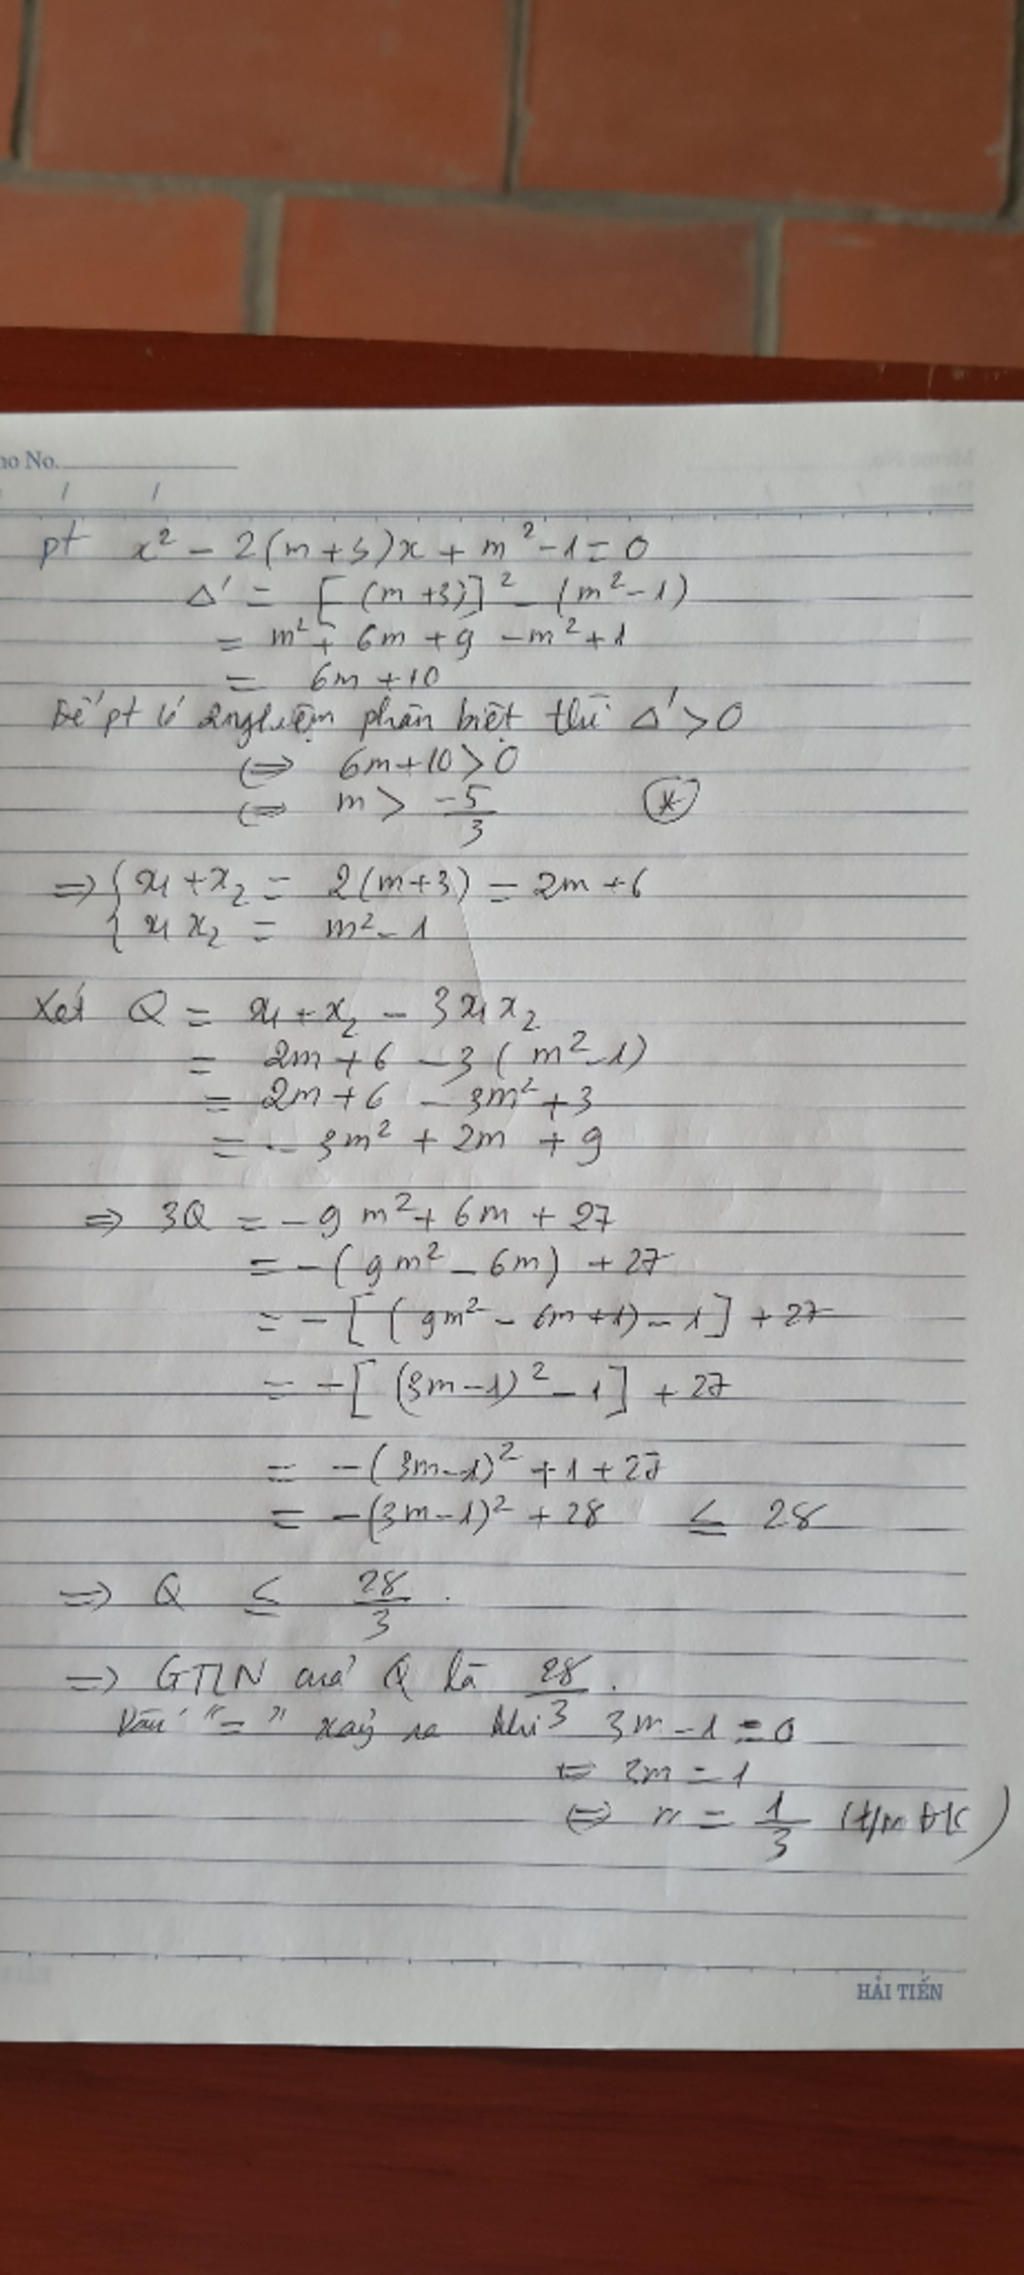 no No.
/ /
pt x² - 2(m+3)x + m² - 1 = 0
Δ' = [(m+3)]² - (m² - 1)
= m² + 6m + 9 - m² + 1
= 6m + 10
Để pt có 2 nghiệm phân biệt thì Δ' > 0
⇔ 6m + 10 > 0
⇔ m > -5/3 (*)
⇒ { x₁ + x₂ = 2(m+3) = 2m + 6
{ x₁ x₂ = m² - 1
Xét Q = x₁ + x₂ - 3x₁x₂
= 2m + 6 - 3(m² - 1)
= 2m + 6 - 3m² + 3
= - 3m² + 2m + 9
⇒ 3Q = - 9m² + 6m + 27
= -(9m² - 6m) + 27
= -[(9m² - 6m + 1) - 1] + 27
= -[(3m-1)² - 1] + 27
= -(3m-1)² + 1 + 27
= -(3m-1)² + 28 ≤ 28
⇒ Q ≤ 28/3.
⇒ GTLN của Q là 28/3.
Dấu "=" xảy ra khi 3m - 1 = 0
⇔ 3m = 1
⇔ m = 1/3 (t/m ĐK)
HẢI TIẾN